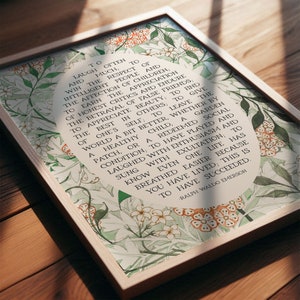 TO
LAUGH OFTEN
AND MUCH, TO
WIN THE RESPECT OF
INTELLIGENT PEOPLE AND
THE AFFECTION OF CHILDREN,
TO EARN THE APPRECIATION
OF HONEST CRITICS AND ENDURE
THE BETRAYAL OF FALSE FRIENDS,
TO APPRECIATE BEAUTY, TO FIND
THE BEST IN OTHERS, TO GIVE
OF ONE'S SELF, TO LEAVE THE
WORLD A BIT BETTER, WHETHER BY
A HEALTHY CHILD, A GARDEN
PATCH OR A REDEEMED SOCIAL
CONDITION, TO HAVE PLAYED AND
LAUGHED WITH ENTHUSIASM AND
SUNG WITH EXULTATION, TO
KNOW EVEN ONE LIFE HAS
BREATHED EASIER BECAUSE
YOU HAVE LIVED, THIS IS
TO HAVE SUCCEEDED.
RALPH WALDO EMERSON